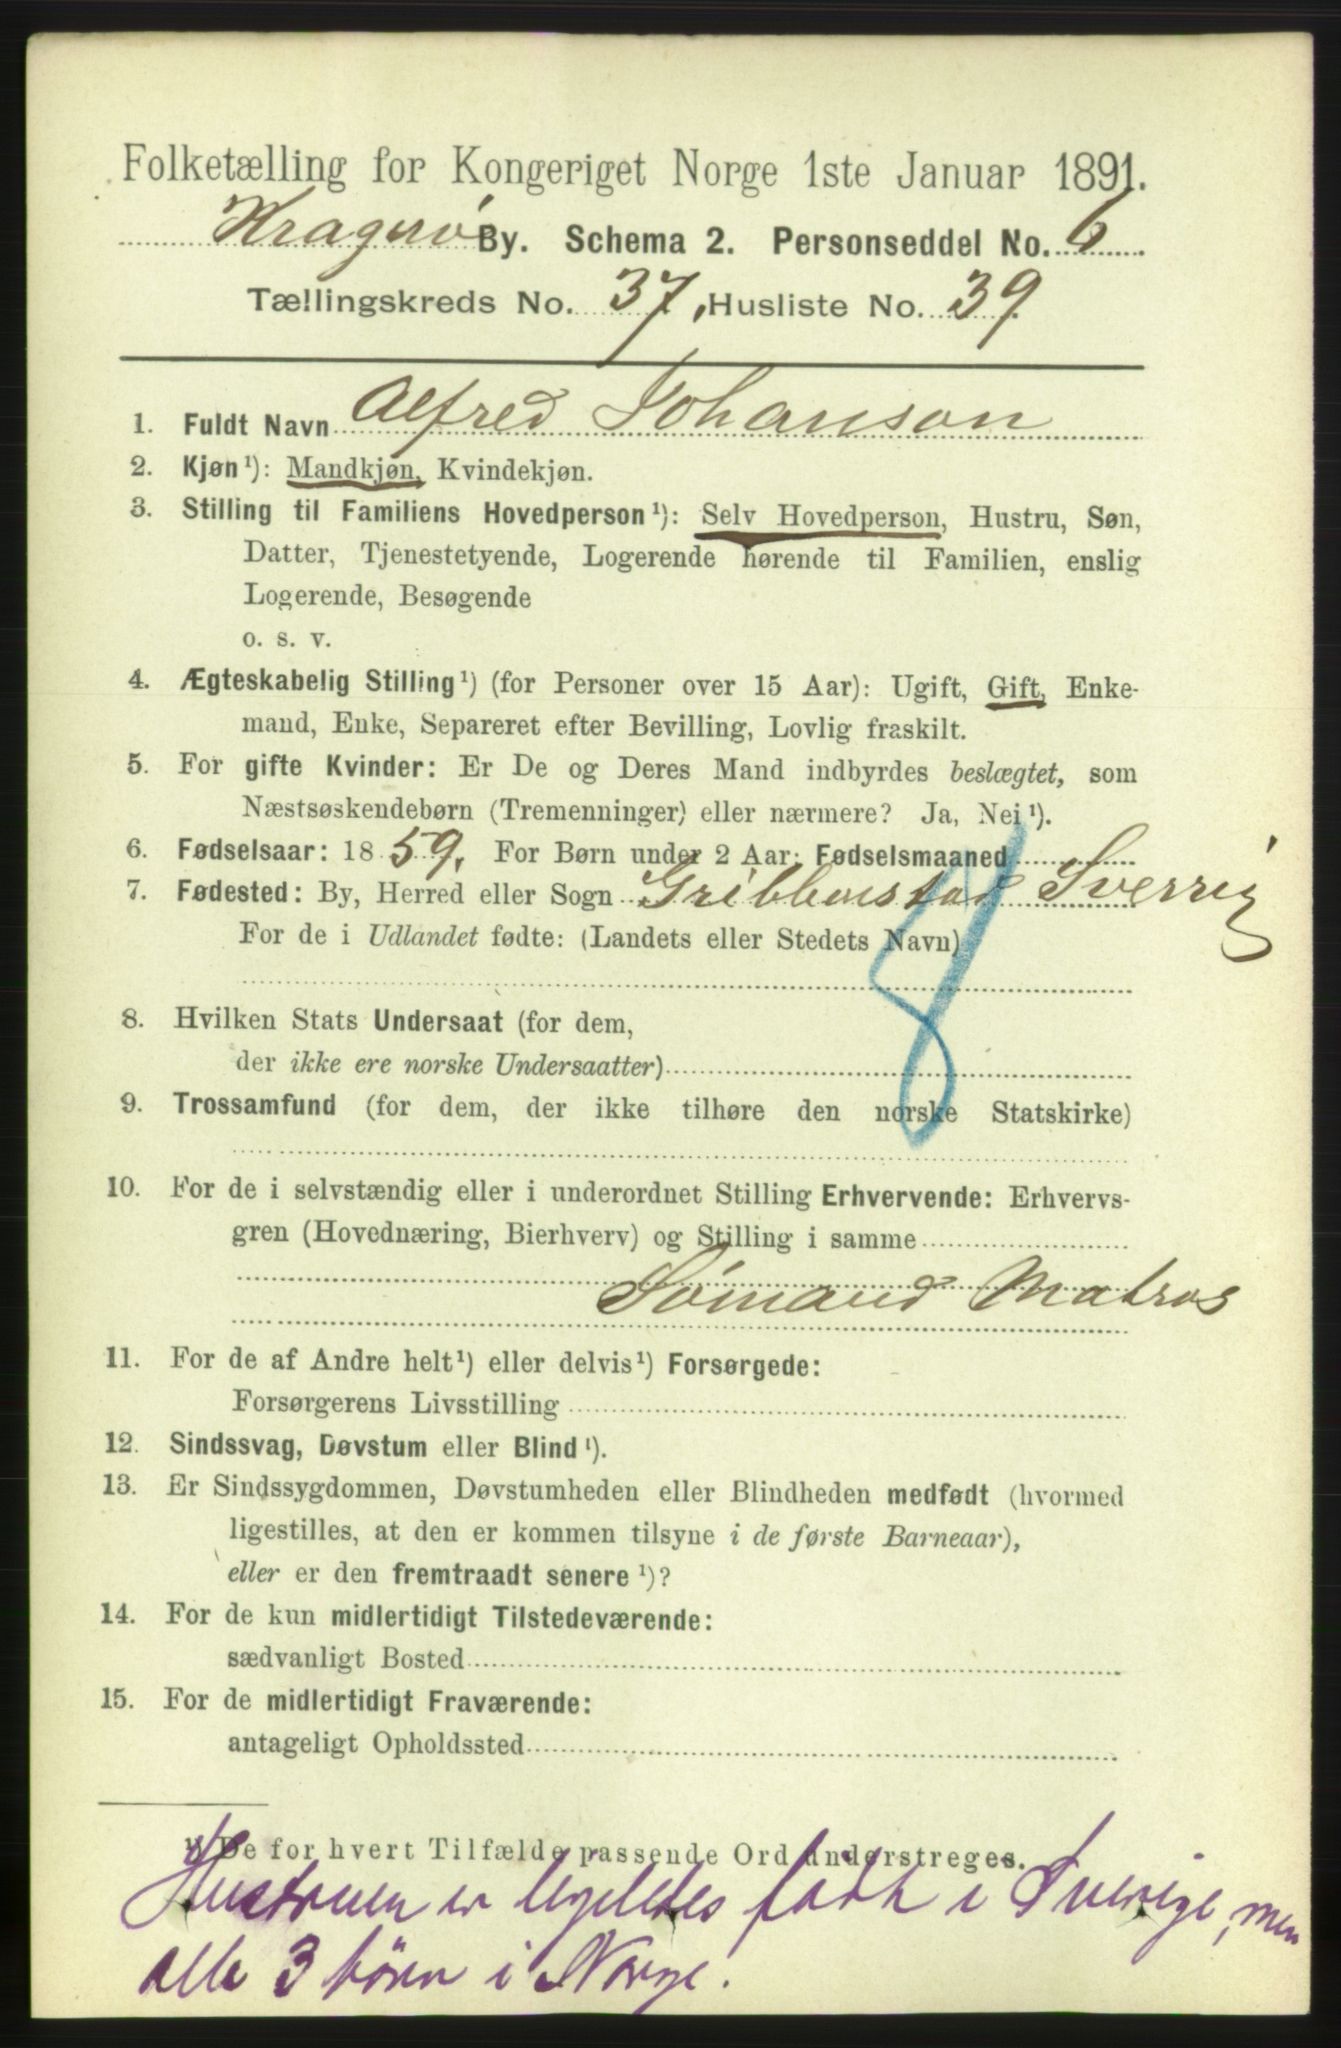 Folketælling for Kongeriget Norge 1ste Januar 1891.
Kragerø By. Schema 2. Personseddel No. 6
Tællingskreds No. 37, Husliste No. 39.
1. Fuldt Navn Alfred Johanson
2. Kjøn¹): Mandkjøn, Kvindekjøn.
3. Stilling til Familiens Hovedperson¹): Selv Hovedperson, Hustru, Søn,
Datter, Tjenestetyende, Logerende hørende til Familien, enslig
Logerende, Besøgende
o. s. v.
4. Ægteskabelig Stilling¹) (for Personer over 15 Aar): Ugift, Gift, Enke-
mand, Enke, Separeret efter Bevilling, Lovlig fraskilt.
5. For gifte Kvinder: Er De og Deres Mand indbyrdes beslægtet, som
Næstsøskendebørn (Tremenninger) eller nærmere? Ja, Nei¹).
6. Fødselsaar: 1859. For Børn under 2 Aar: Fødselsmaaned
7. Fødested: By, Herred eller Sogn Gribbenstad Sverrig
For de i Udlandet fødte: (Landets eller Stedets Navn)
8. Hvilken Stats Undersaat (for dem,
der ikke ere norske Undersaatter)
9. Trossamfund (for dem, der ikke tilhøre den norske Statskirke)
10. For de i selvstændig eller i underordnet Stilling Erhvervende: Erhvervs-
gren (Hovednæring, Bierhverv) og Stilling i samme
Sømand Matros
11. For de af Andre helt¹) eller delvis¹) Forsørgede:
Forsørgerens Livsstilling
12. Sindssvag, Døvstum eller Blind¹).
13. Er Sindssygdommen, Døvstumheden eller Blindheden medfødt (hvormed
ligestilles, at den er kommen tilsyne i de første Barneaar),
eller er den fremtraadt senere¹)?
14. For de kun midlertidigt Tilstedeværende:
sædvanligt Bosted
15. For de midlertidigt Fraværende:
antageligt Opholdssted
¹) De for hvert Tilfælde passende Ord understreges.
Hustruen er ligeledes født i Sverige, men
alle 3 børn i Norge.